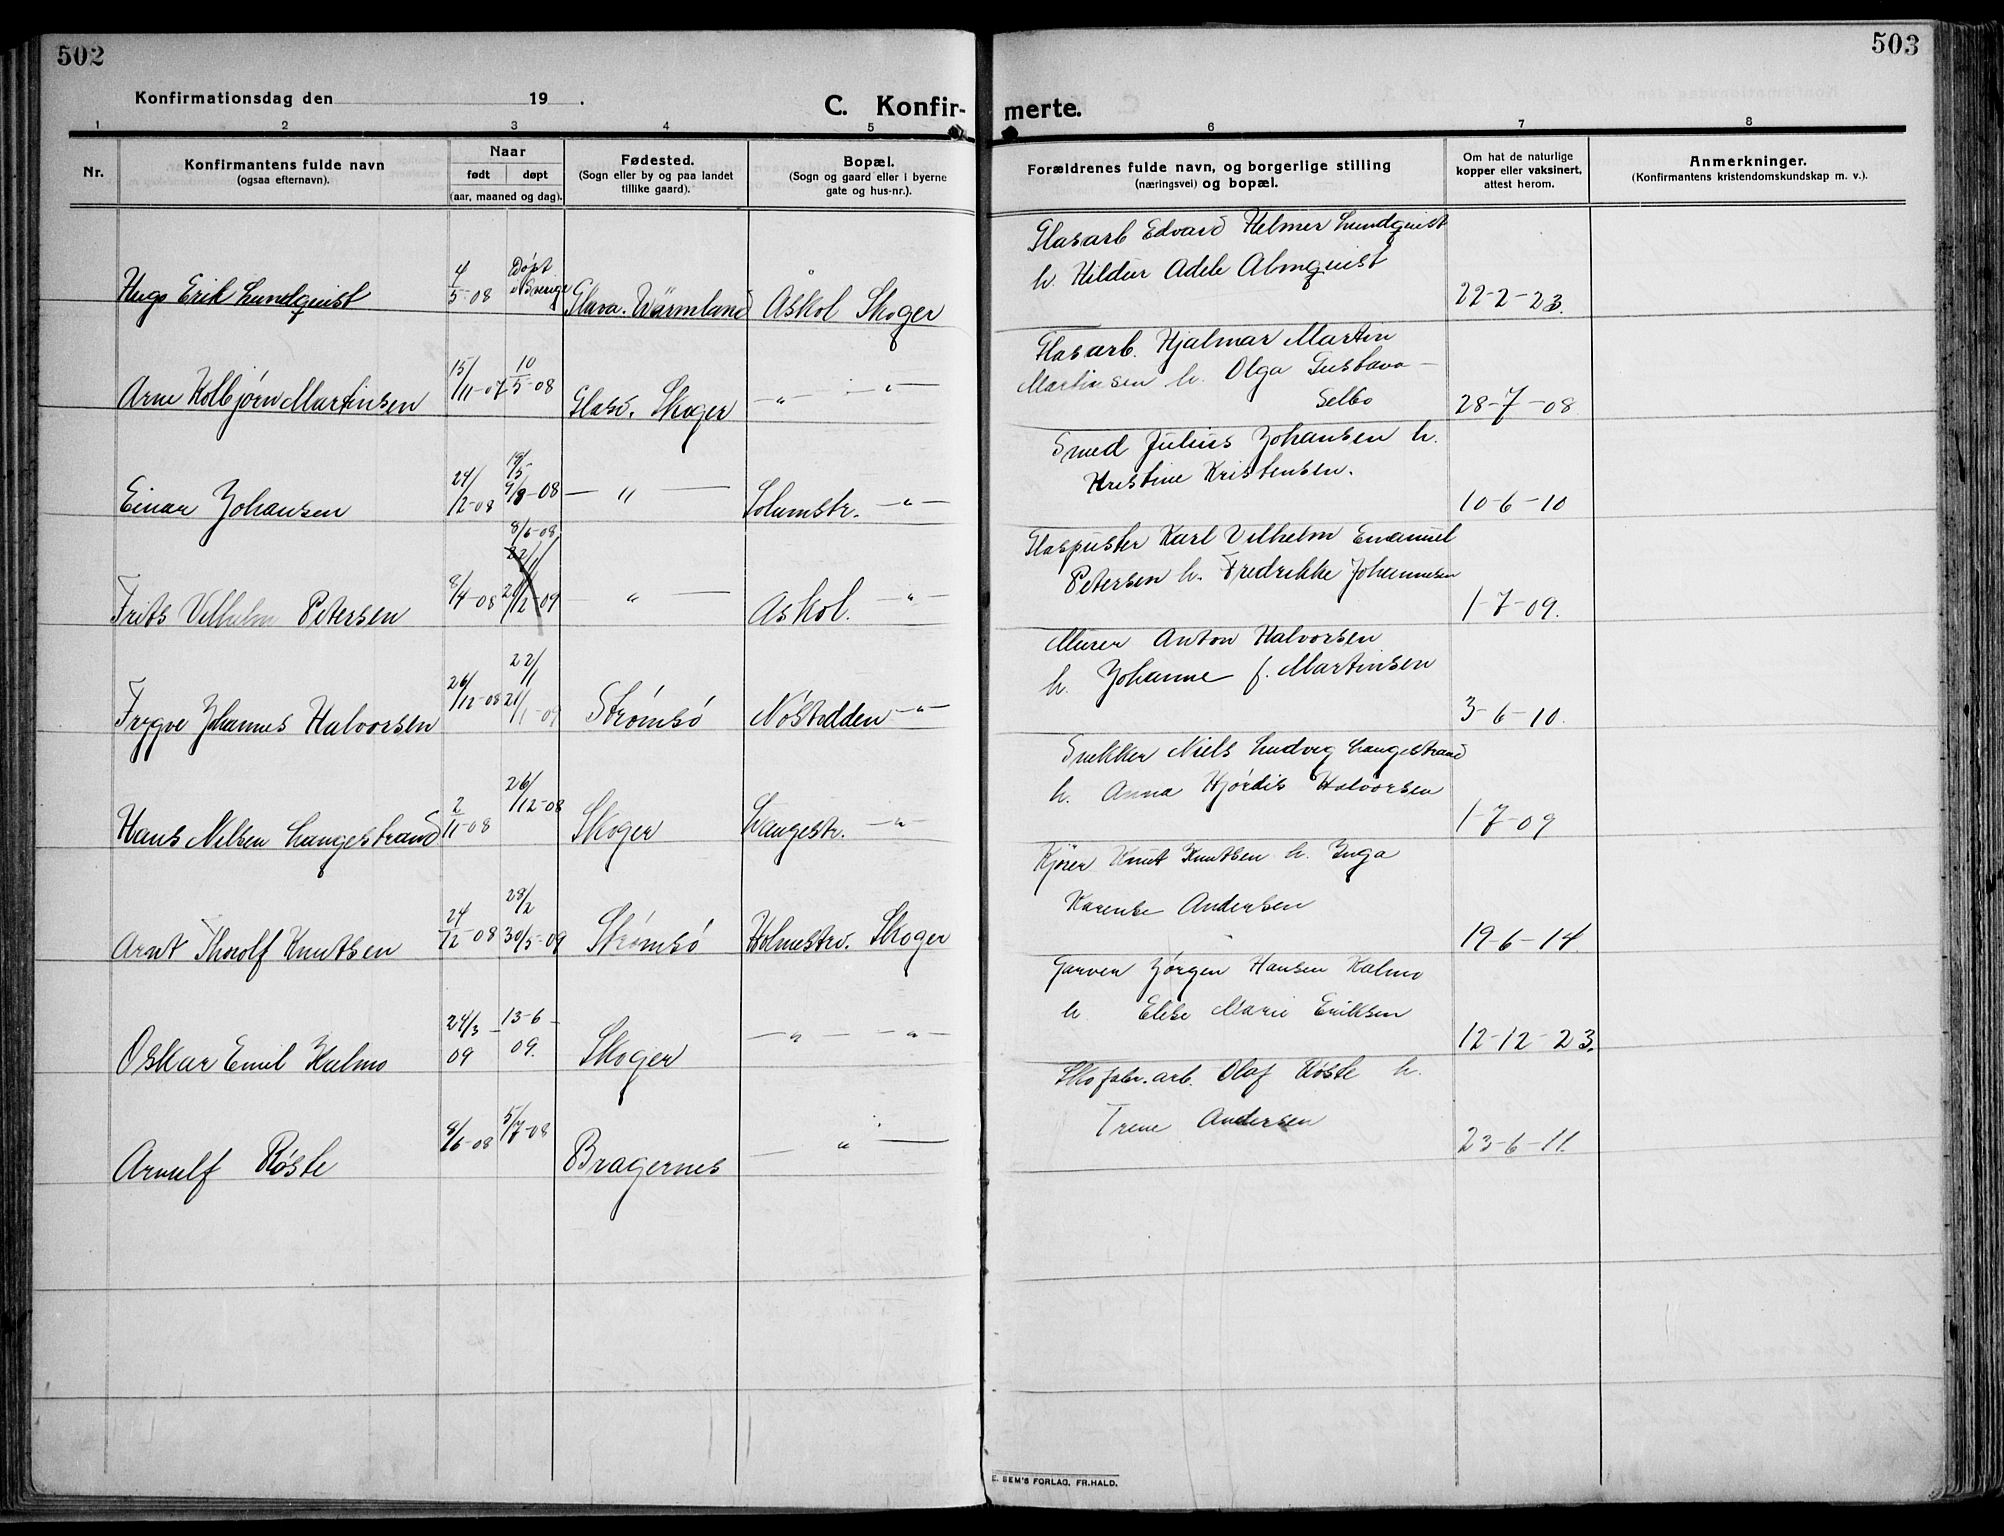 502
Konfirmationsdag den 19 .
C. Konfir-
1 2 3 4 5
Nr.
Konfirmantens fulde navn
(ogsaa efternavn).
Naar
født døpt
(aar, maaned og dag).
Fødested.
(Sogn eller by og paa landet
tillike gaard).
Bopæl.
(Sogn og gaard eller i byerne
gate og hus-nr.).
Hugo Erik Lundquist 4/5-08 Døpt i Sverige Glava. Wärmland Åskol Skoger
Arne Kolbjørn Martinsen 15/11-07 10/5-08 Glasv. Skoger -"- -"-
Einar Johansen 24/2-08 -"- Solumstr. -"-
8/6-08
Frits Vilhelm Petersen 8/4-08 -"- Åskol. -"-
22/1
Trygve Johannes Halvorsen 26/12-08 21/1-09 Strømsö Nøstedden -"-
Hans Nilsen Langestrand 2/11-08 26/12-08 Skoger Langestr. -"-
28/2
Arnt Thorolf Knutsen 24/12-08 30/5-09 Strømsö Holmestrv. Skoger
Oskar Emil Kalmo 24/3-09 13-6-09. Skoger -"- -"-
Arnulf Røste 8/6-08 5/7-08 Bragernes -"-
503
merte.
6 7 8
Forældrenes fulde navn, og borgerlige stilling
(næringsvei) og bopæl.
Om hat de naturlige
kopper eller vaksinert,
attest herom.
Anmerkninger.
(Konfirmantens kristendomskundskap m. v.).
Glasarb Edvard Helmer Lundquist
h. Hildur Adele Almquist
22-2-23.
Glasarb. Hjalmar Martin
Martinsen h. Olga Gustava
Selbo 28-7-08
Smed Julius Johansen h.
Kristine Kristensen.
10-6-10
Glaspuster Karl Vilhelm Emanuel
Petersen h. Fredrikke Johannesen
1-7-09.
Murer Anton Halvorsen
h. Johanne f. Martinsen
3-6-10.
Snekker Niels Ludvig Langestrand
h. Anna Hjördis Halvorsen
1-7-09
Kjører Knut Knutsen h. Inga
Karense Andersen
19-6-14.
Garver Jørgen Hansen Kalmo
h Elise Marie Eriksen
12-12-23.
Skofabr.arb. Olaf Røste h.
Trene Andersen
23-6-11.
E. SEM'S FORLAG, FR.HALD.